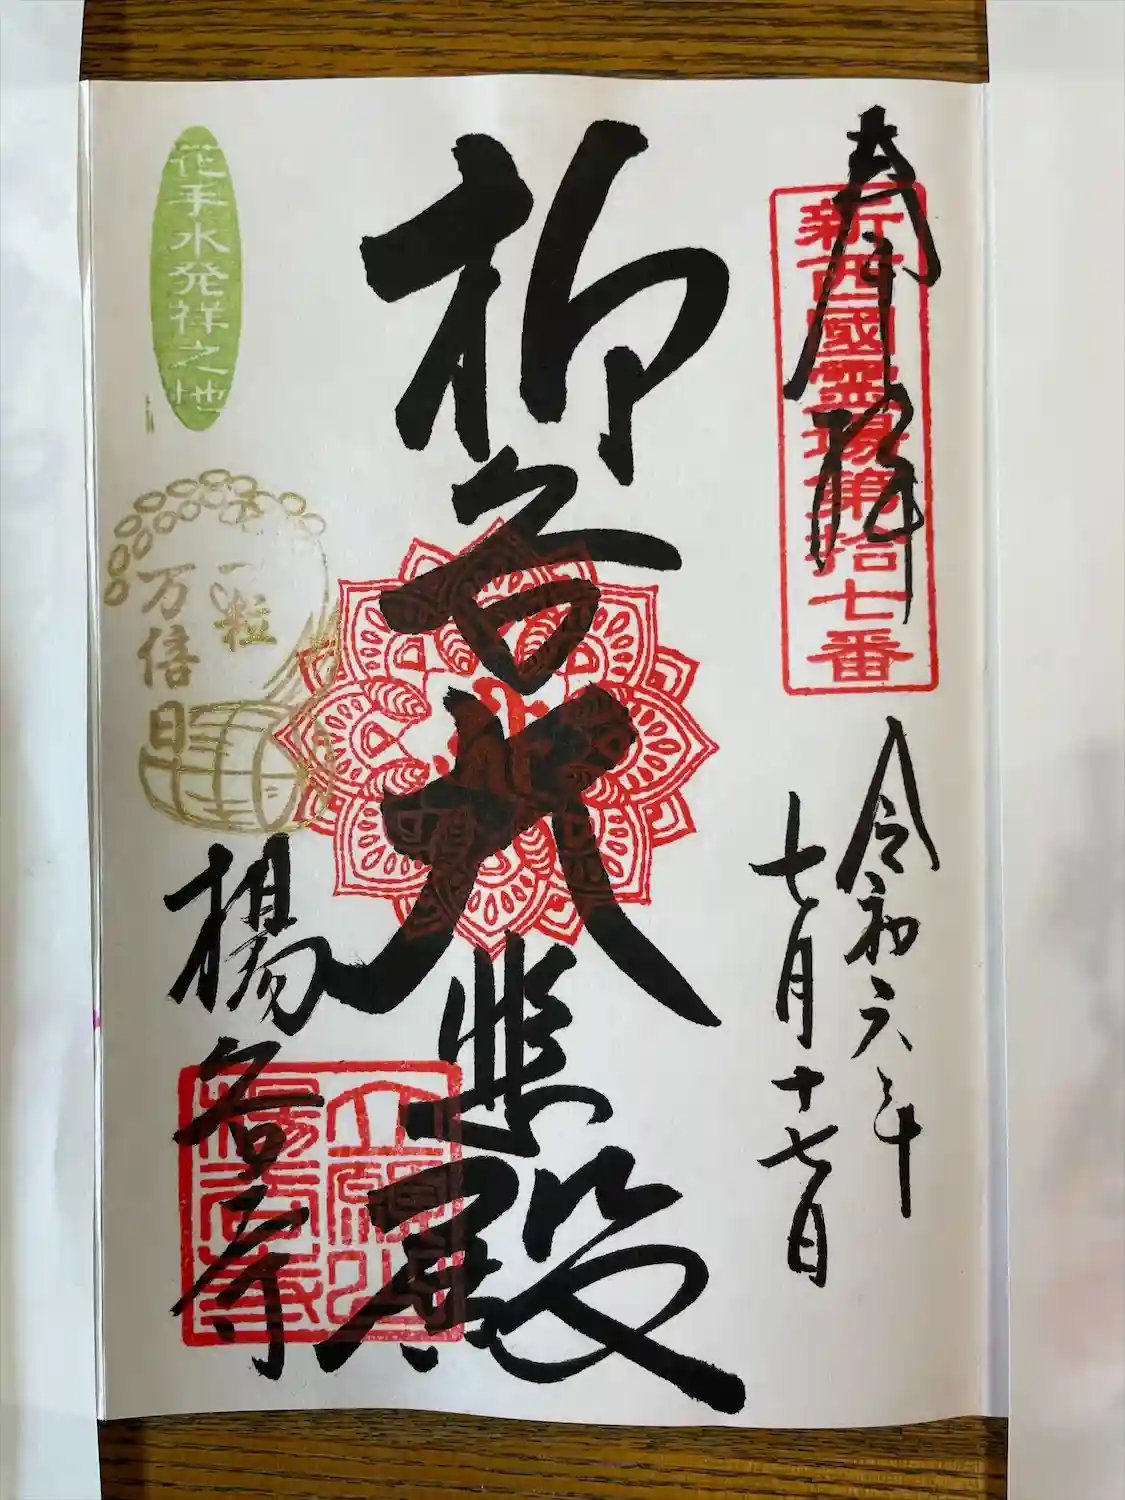 奉拝
新西國霊場第拾七番
令和六年
七月十七日
柳谷大悲殿
花手水発祥之地
一粒
万倍
日
楊谷寺
立願山
楊谷寺